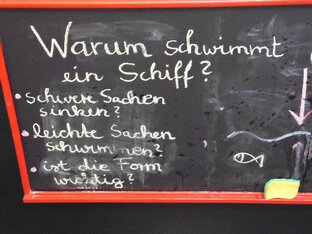 Warum schwimmt
ein Schiff?
• schwere Sachen
sinken?
• leichte Sachen
schwimmen?
• ist die Form
wichtig?